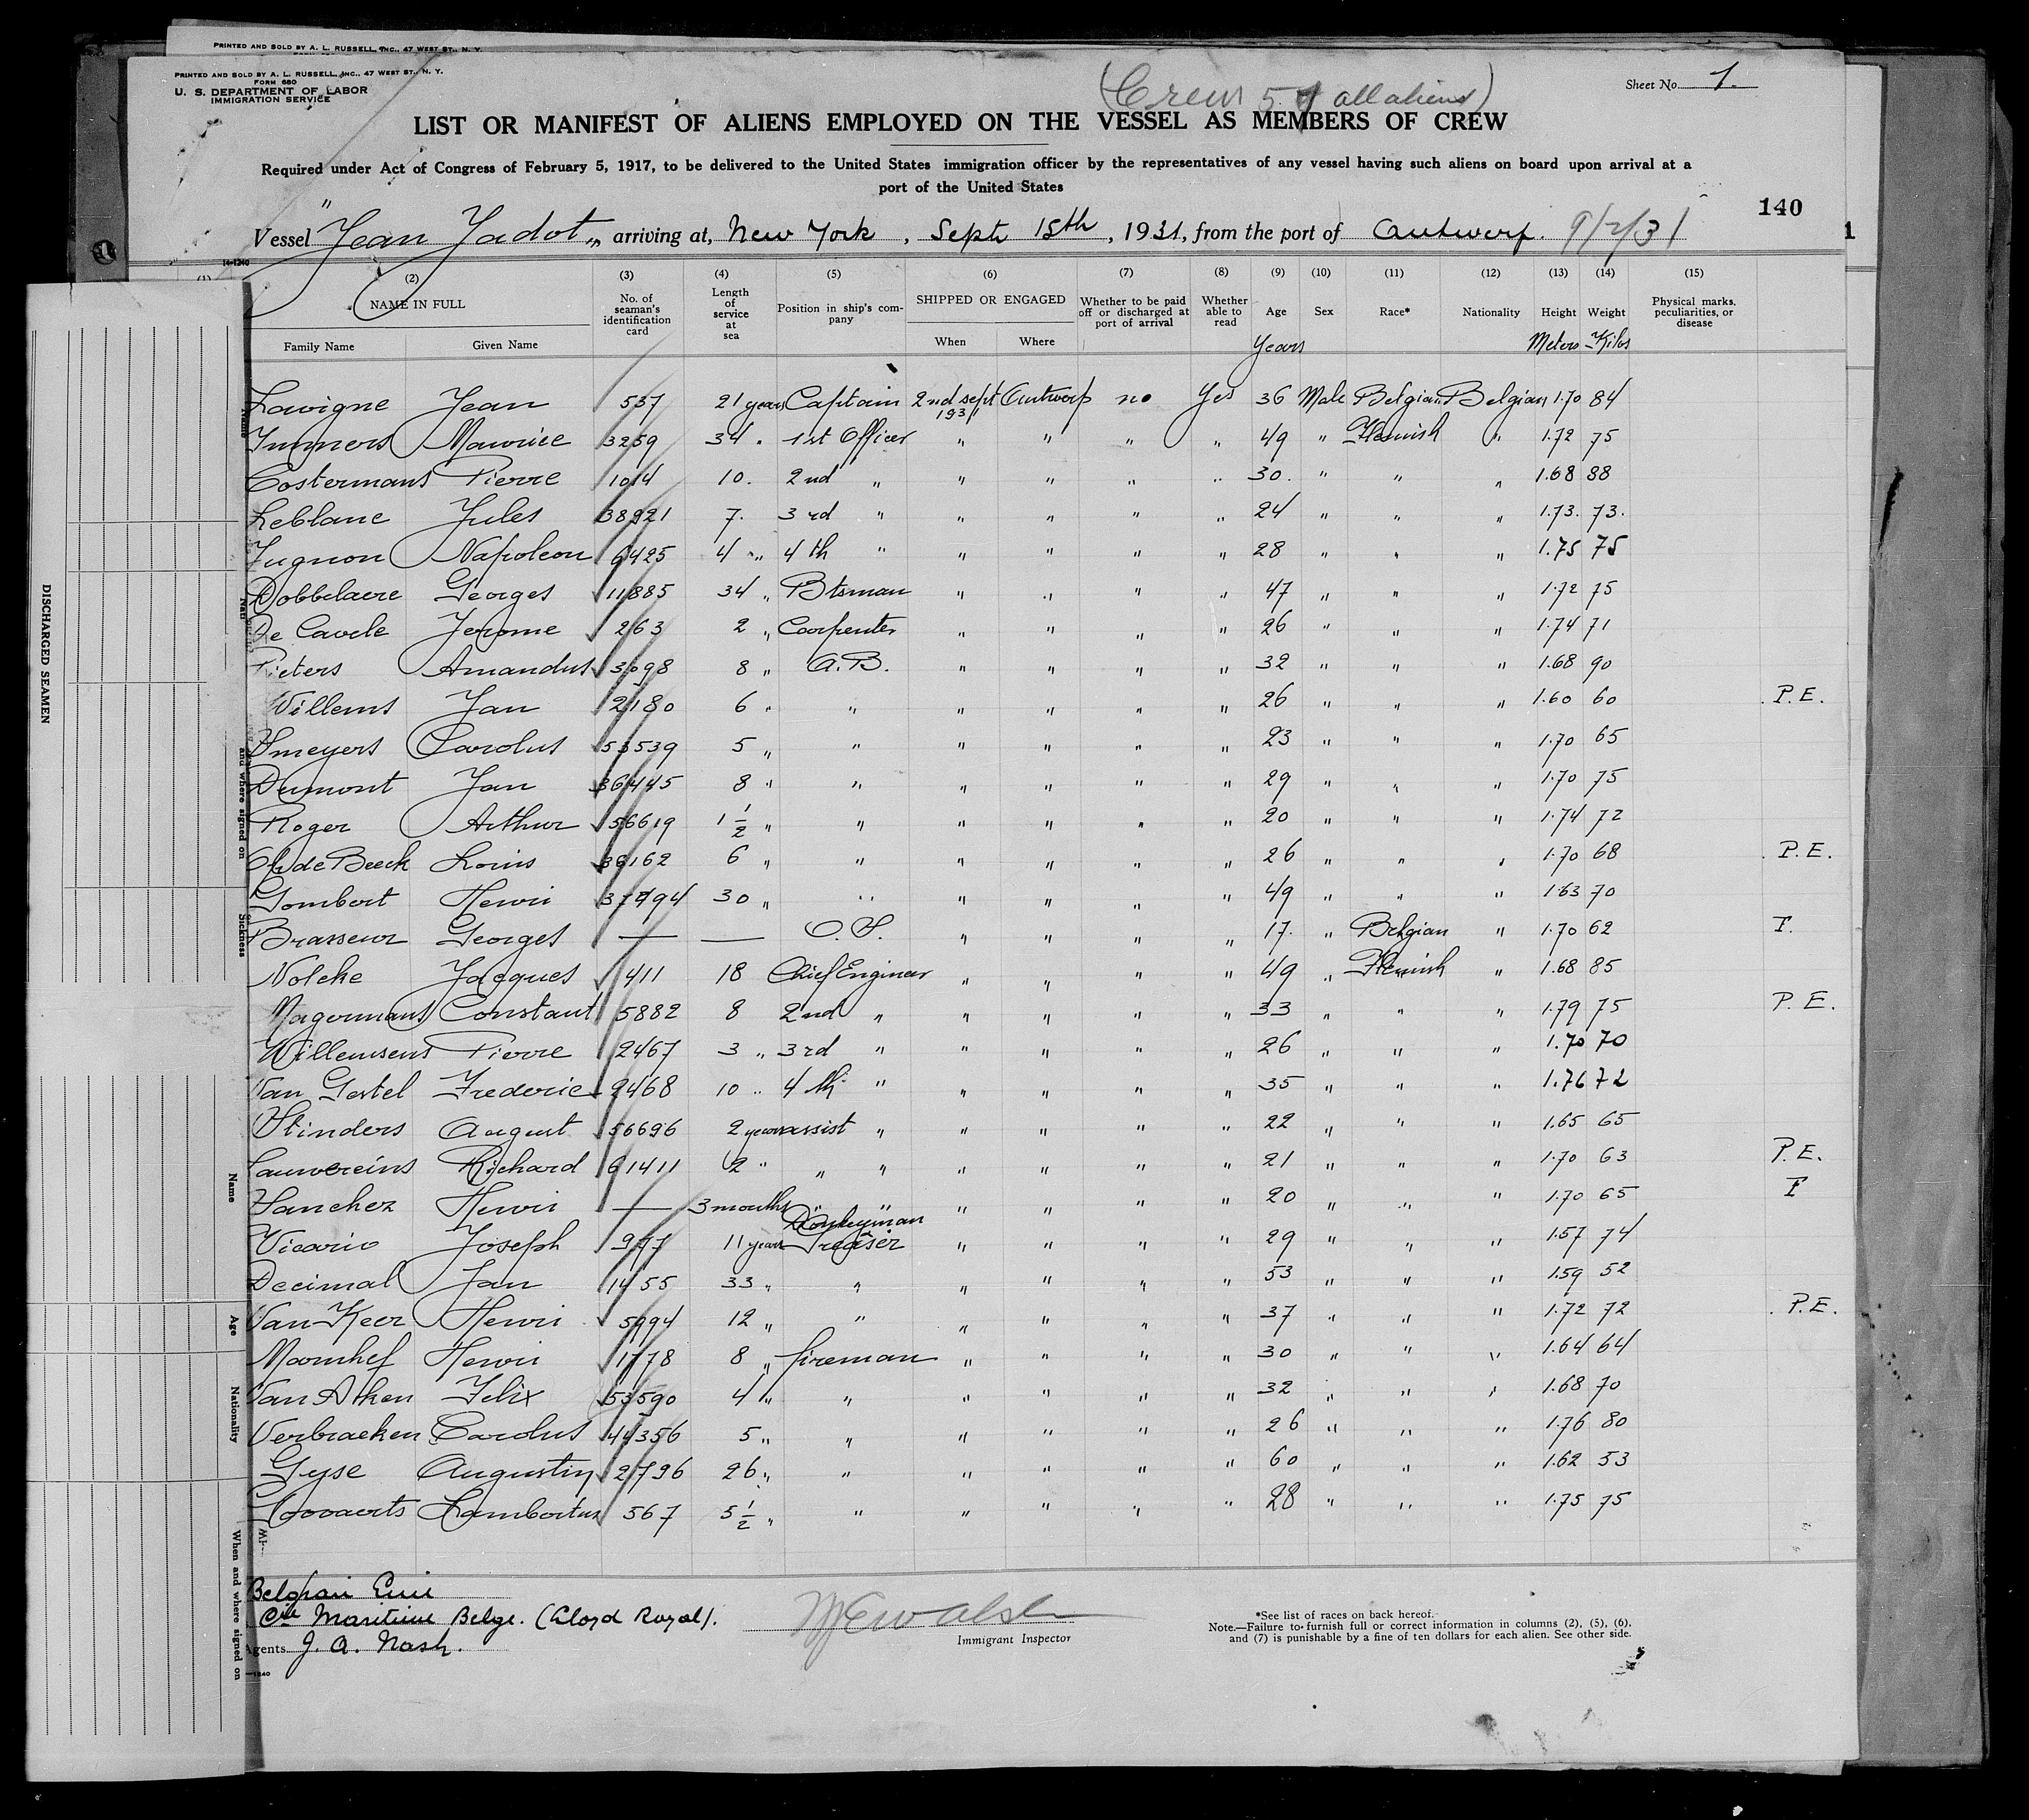 PRINTED AND SOLD BY A. L. RUSSELL, INC., 47 WEST ST., N. Y.
PRINTED AND SOLD BY A. L. RUSSELL, INC., 47 WEST ST., N. Y.
FORM 680
U. S. DEPARTMENT OF LABOR
IMMIGRATION SERVICE
(Crew 57 all aliens)
Sheet No. 1.
LIST OR MANIFEST OF ALIENS EMPLOYED ON THE VESSEL AS MEMBERS OF CREW
Required under Act of Congress of February 5, 1917, to be delivered to the United States immigration officer by the representatives of any vessel having such aliens on board upon arrival at a
port of the United States
140
Vessel "Jean Jadot" arriving at, New York, Septr 15th, 1931, from the port of Antwerp. 9/2/31
1
14-1240
(1) (2) (3) (4) (5) (6) (7) (8) (9) (10) (11) (12) (13) (14) (15)
NAME IN FULL No. of seaman's identification card Length of service at sea Position in ship's company SHIPPED OR ENGAGED Whether to be paid off or discharged at port of arrival Whether able to read Age Sex Race* Nationality Height Weight Physical marks, peculiarities, or disease
Family Name Given Name When Where Years Meters Kilos
Lavigne Jean 537 21 years Captain 2nd sept 1931 Antwerp no Yes 36 Male Belgian Belgian 1.70 84
Maurice 3259 34 " 1st Officer " " " " 49 " Flemish " 1.72 75
Costermans Pierre 1014 10. 2nd " " " " " 30. " " " 1.68 88
Leblanc Jules 38921 7. 3rd " " " " " 24 " " " 1.73. 73.
Napoleon 6425 4 " 4th " " " " " 28 " " " 1.75 75
Dobbelaere Georges 11885 34 " Btsman " " " " 47 " " " 1.72 75
De Cavele Jerome 263 2 " Carpenter " " " " 26 " " " 1.74 71
Pieters Amandus 3098 8 " A.B. " " " " 32 " " " 1.68 90
Willems Jan 2180 6 " " " " " " 26 " " " 1.60 60 P.E.
Smeyers Carolus 53539 5 " " " " " " 23 " " " 1.70 65
Dumont Jan 36445 8 " " " " " " 29 " " " 1.70 75
Roger Arthur 56619 1 1/2 " " " " " " 20 " " " 1.74 72
Op de Beeck Louis 36162 6 " " " " " " 26 " " " 1.70 68 P.E.
Gombert Henri 37494 30 " " " " " " 49 " " " 1.63 70
Brasseur Georges — — O.S. " " " " 17. " Belgian " 1.70 62 F.
Nolcke Jacques 411 18 Chief Engineer " " " " 49 " Flemish " 1.68 85
Magermans Constant 5882 8 2nd " " " " " 33 " " " 1.79 75 P.E.
Willemsens Pierre 2467 3 " 3rd " " " " " 26 " " " 1.70 70
Van Gestel Frederic 2468 10 " 4th " " " " " 35 " " " 1.76 72
Stinders August 56696 2 years assist " " " " " 22 " " " 1.65 65
Lauwereins Richard 61411 2 " " " " " " " 21 " " " 1.70 63 P.E.
Sanchez Henri — 3 months " " " " " " 20 " " " 1.70 65 F
Donkeyman
Vicario Joseph 997 11 years Greaser " " " " 29 " " " 1.57 74
Decimal Jan 1455 33 " " " " " " 53 " " " 1.59 52
Van Keer Henri 5994 12 " " " " " " 37 " " " 1.72 72 P.E.
Henri 1778 8 " fireman " " " " 30 " " " 1.64 64
Van Athen Felix 53590 4 " " " " " " 32 " " " 1.68 70
Verbraeken Carolus 44356 5 " " " " " " 26 " " " 1.76 80
Gyse Augustin 2796 26 " " " " " " 60 " " " 1.62 53
Govaerts Lambertus 567 5 1/2 " " " " " " 28 " " " 1.75 75
Belgian Line
Cie Maritime Belge. (Lloyd Royal).
Agents J. A. Nash.
Immigrant Inspector
*See list of races on back hereof.
Note.—Failure to furnish full or correct information in columns (2), (5), (6),
and (7) is punishable by a fine of ten dollars for each alien. See other side.
DISCHARGED SEAMEN
and where signed on
Sickness
Name
Age
Nationality
When and where signed on